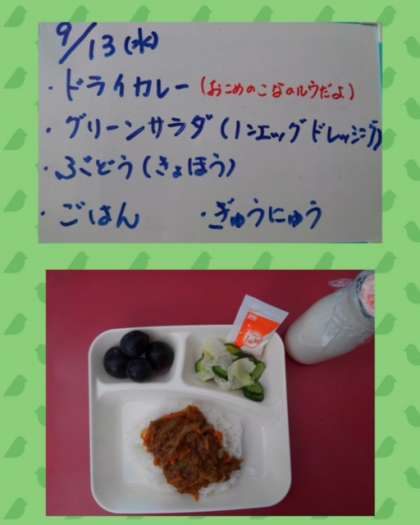 9/13(水)
・ドライカレー(おこめのこなのルウだよ)
・グリーンサラダ(ノンエッグドレッシング)
・ぶどう(きょほう)
・ごはん ・ぎゅうにゅう